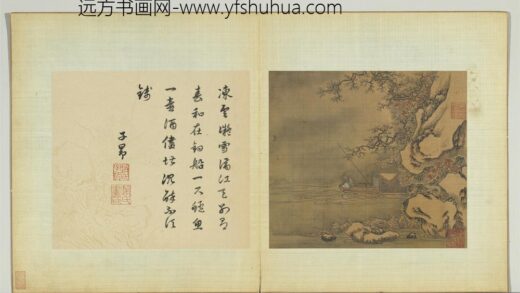 远方书画网-www.yfshuhua.com
凍雲凝雪滿江天別有
春和在釣船一尺鱸魚
一壺酒儘堪沉醉不須
錢
子昂